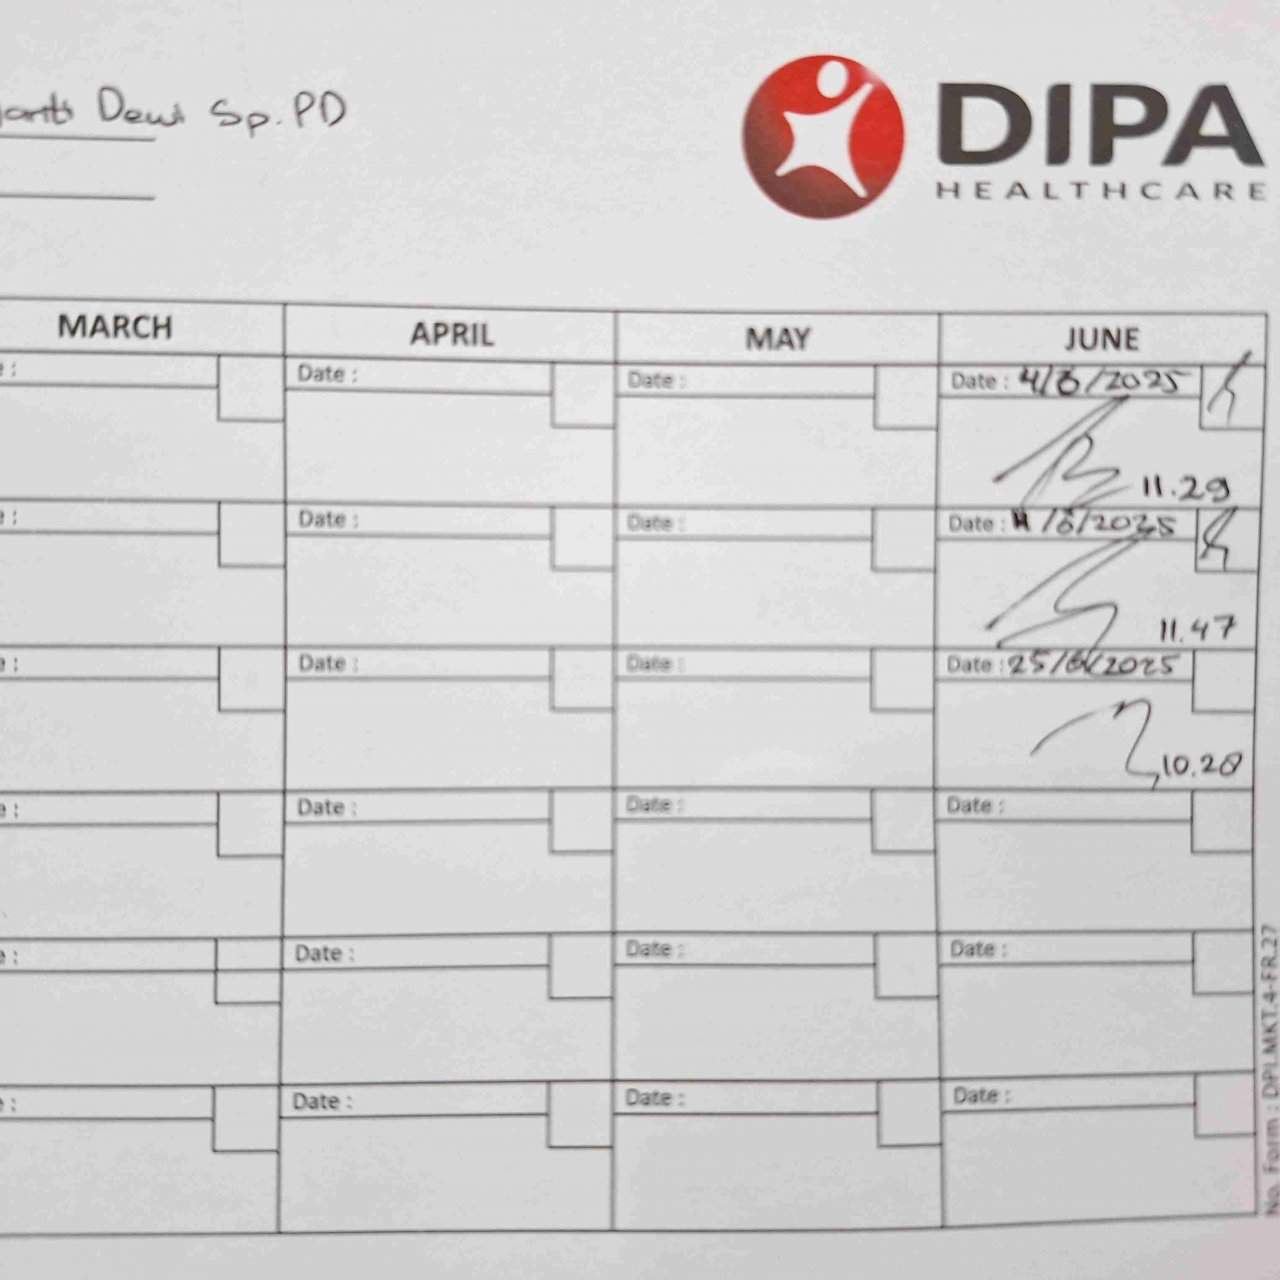 Dewi Sp.PD
DIPA
HEALTHCARE
MARCH APRIL MAY JUNE
Date : Date : Date : 4/6/2025
11.29
Date : Date : Date : 11/6/2025
11.47
Date : Date : Date : 25/6/2025
10.28
Date : Date : Date :
Date : Date : Date :
Date : Date : Date :
No. Form : DPI.MKT.4-FR.27